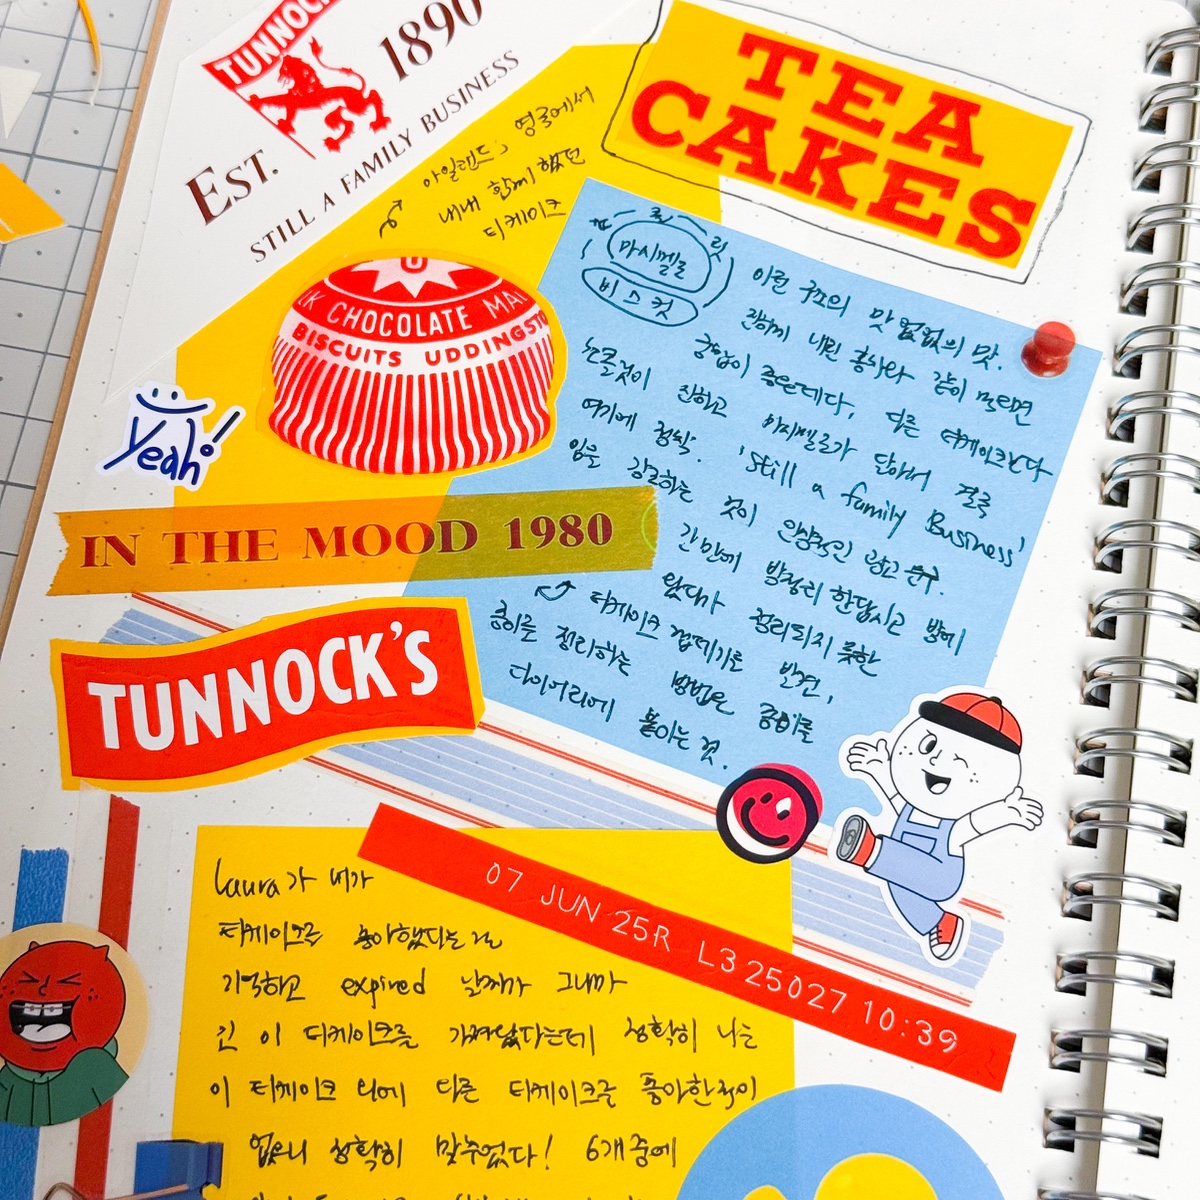 TUNNOCK
EST. 1890
STILL A FAMILY BUSINESS
TEA
CAKES
아일랜드, 영국에서
내내 함께 했던
티케이크
초 콜 릿
마시멜로
비스킷
이런 구조의 맛 없없의 맛.
진하게 내린 홍차와 같이 먹으면
궁합이 좋은데다, 다른 티케이크보다
쵸콜릿이 진하고 마시멜로가 달아서 결국
여기에 정착. 'Still a family Business'
임을 강조하는 것이 인상적인 광고 문구.
간만에 방정리 한답시고 밤에
왔다가 정리되지 못한
티케이크 껍데기를 발견,
종이를 정리하는 방법은 종이를
다이어리에 붙이는 것.
U
K CHOCOLATE MAL
BISCUITS UDDINGSTO
yeah!
IN THE MOOD 1980
TUNNOCK'S
07 JUN 25R L3 25027 10:39
laura가 내가
티케이크를 좋아했다는걸
기억하고 expired 날짜가 그나마
긴 이 티케이크를 가져왔다는데 정확히 나는
이 티케이크 외에 다른 티케이크를 좋아한적이
없으니 정확히 맞추었다! 6개중에